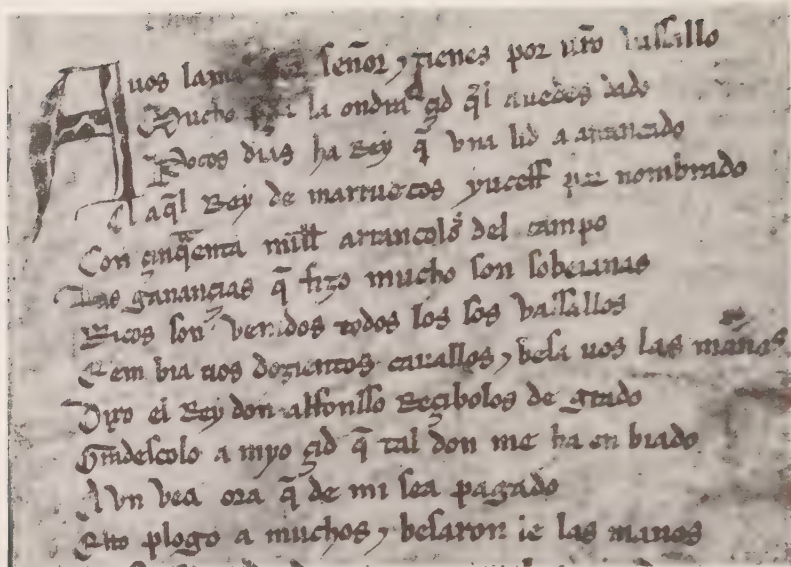 A vos lama por señor y tienes por ur̃o vassallo
Mucho la ondra çid q̃l auedes dado
Pocos dias ha Rey q̃ vna lid a arrancado
A aq̃l Rey de marruecos yuceff por nombrado
Con çinq̃enta mill arrancolos del campo
Las ganançias q̃ fizo mucho son sobeianas
Ricos son venidos todos los sos vassallos
E em bia uos dozientos cauallos y besa uos las manos
Dixo el Rey don alfonsso Reçibolos de grado
Gradescolo a myo çid q̃ tal don me ha en biado
Avn vea ora q̃ de mi sea pagado
Esto plogo a muchos y besaron le las manos